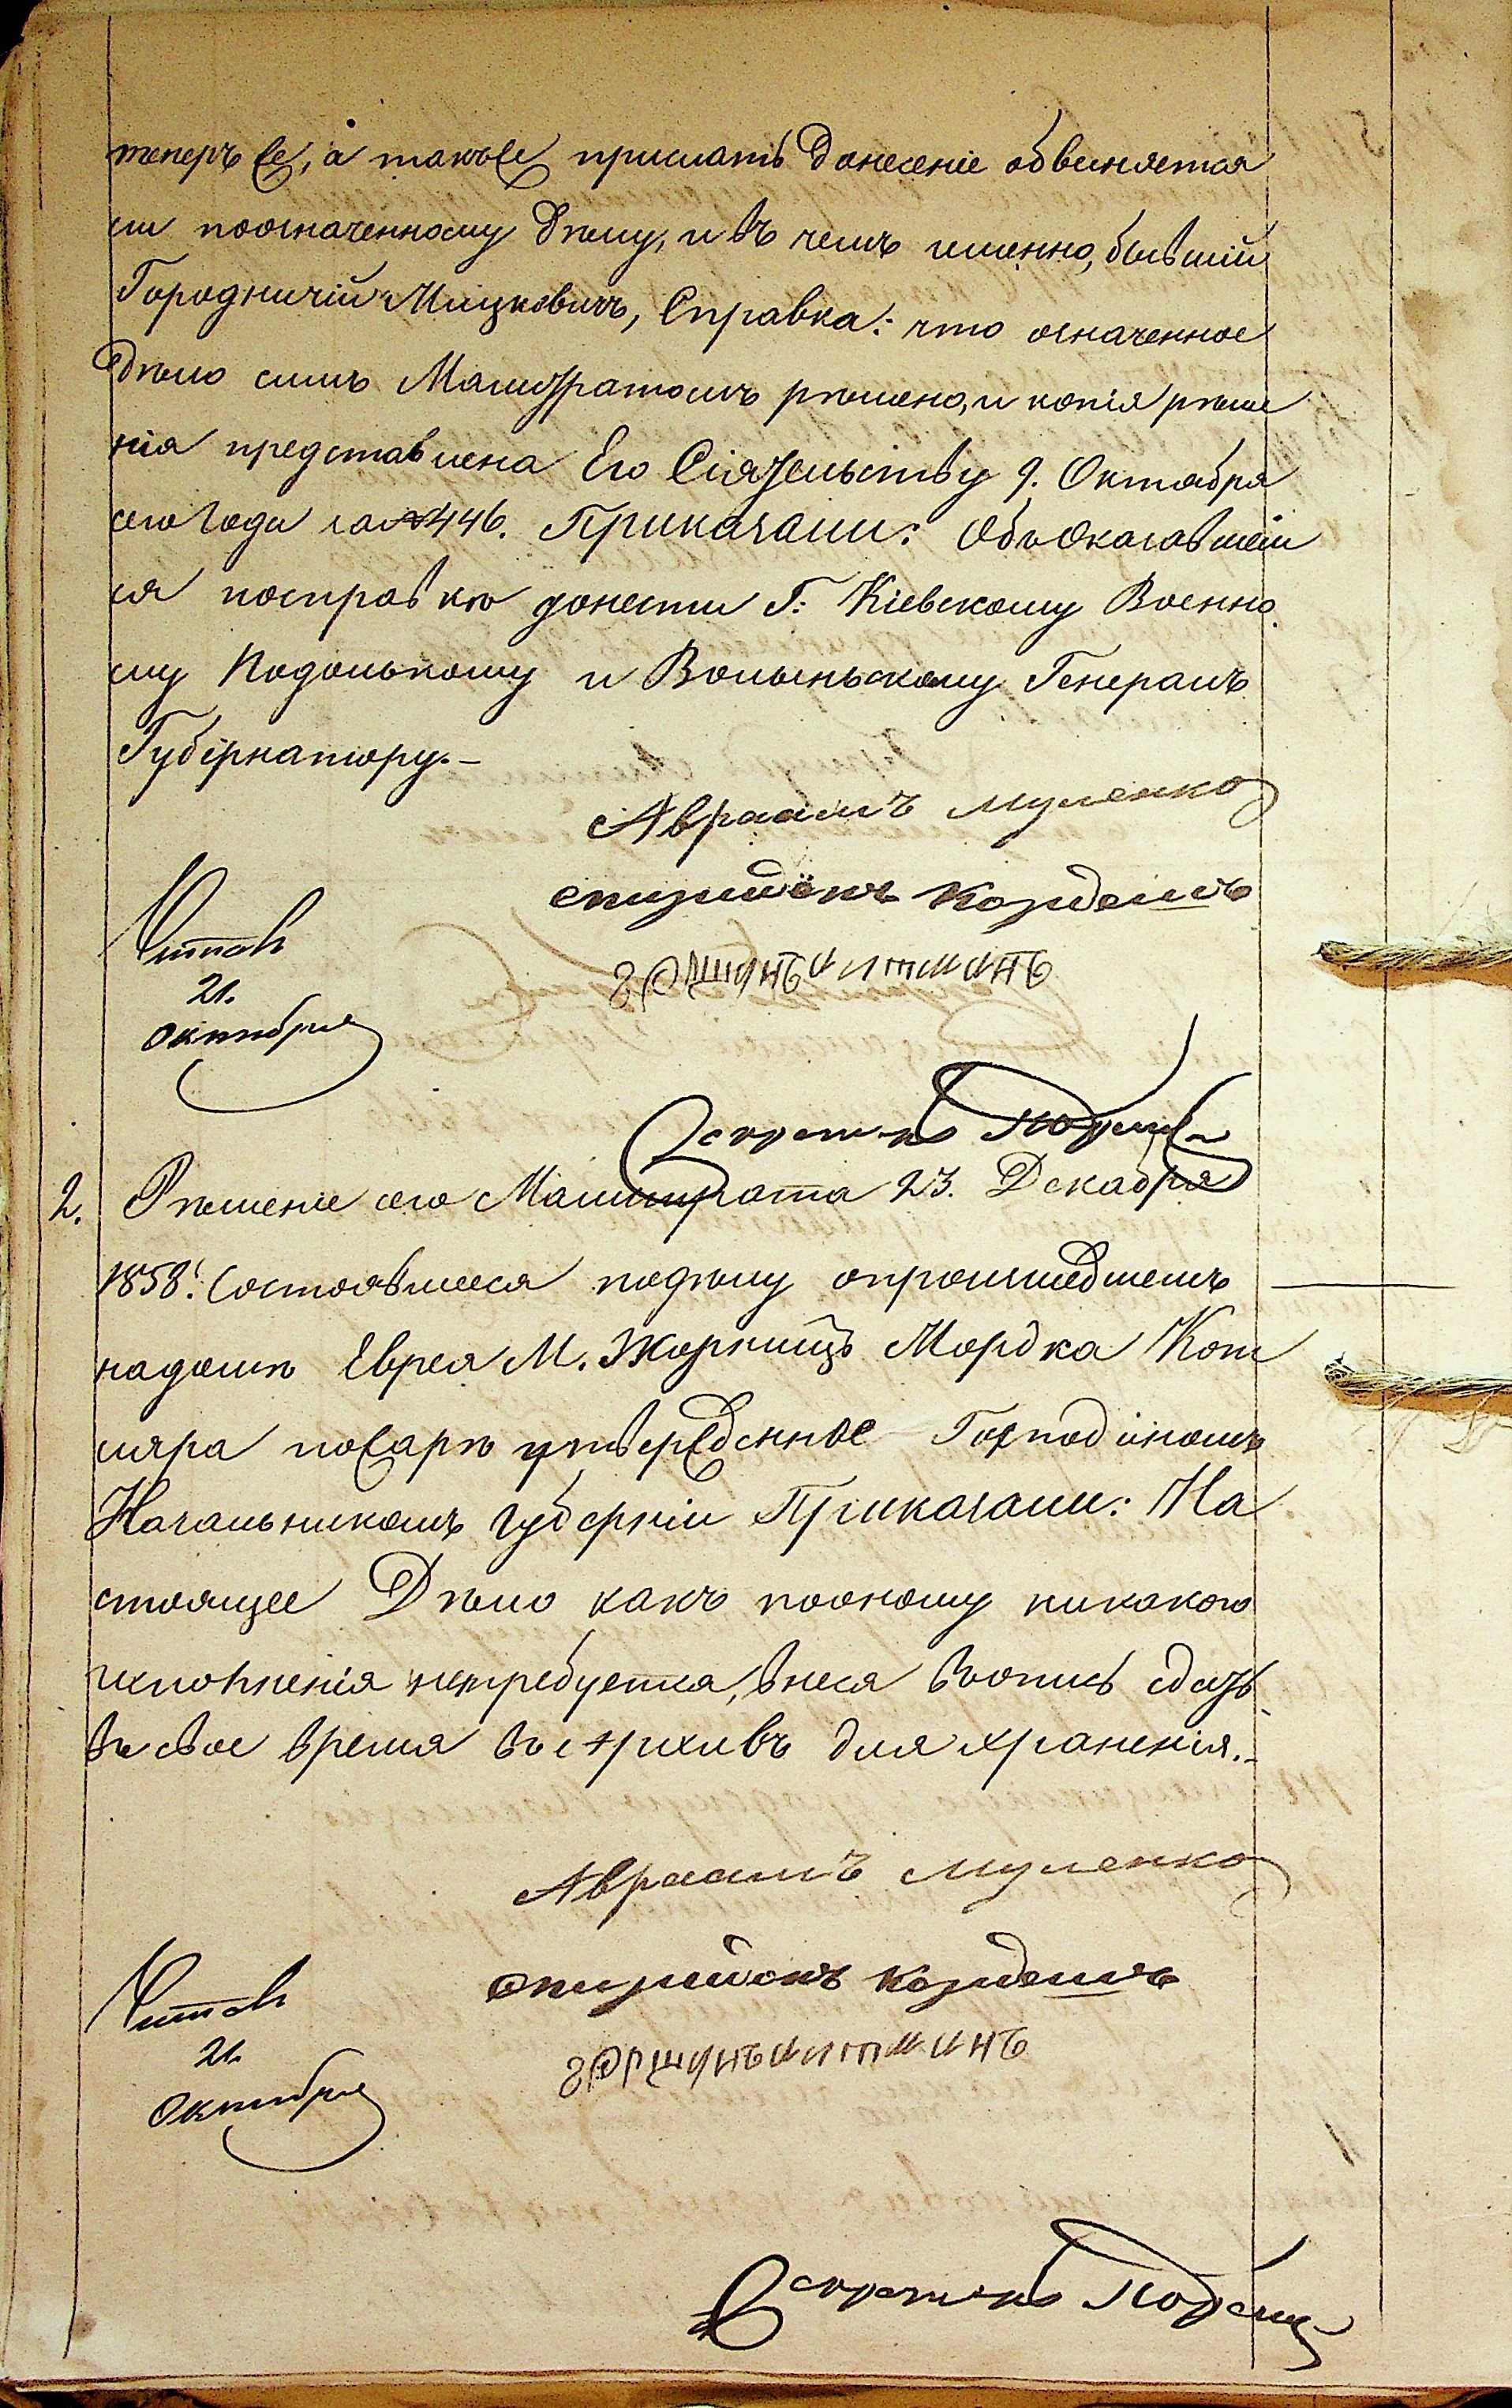 теперъ же, а также прислать донесеніе обвиняется
ли поозначенному дѣлу, и въ чемъ именно, бывшій
Городничій Мицкевичъ, Справка: что означенное
Дѣло симъ Магистратомъ рѣшено, и копія рѣше
нія представлена Его Сіятельству 9. Октября
сего Года за № 446. Приказали: Объ Оказавшеім
ся посправкѣ донести Г: Кіевскому Военно
му Подольскому и Волынскому Генералъ
Губернатору.-
Авраамъ Муленко
Читалъ
21.
Октября
Секретарь
2. Рѣшеніе сего Магистрата 23. Декабря
1858 г. Состоявшееся подѣлу опроисшедшемъ
надомѣ Еврея М. Жорнищъ Мордка Кот
ляра пожарѣ утвержденное Господиномъ
Начальникомъ Губерніи Приказали: На
стоящее Дѣло какъ поономy никакого
исполненія нетребуется, внеся вопись сдать
въ свое время въ Архивъ для храненія.-
Авраамъ Муленко
Читалъ
21.
Октября
Секретарь